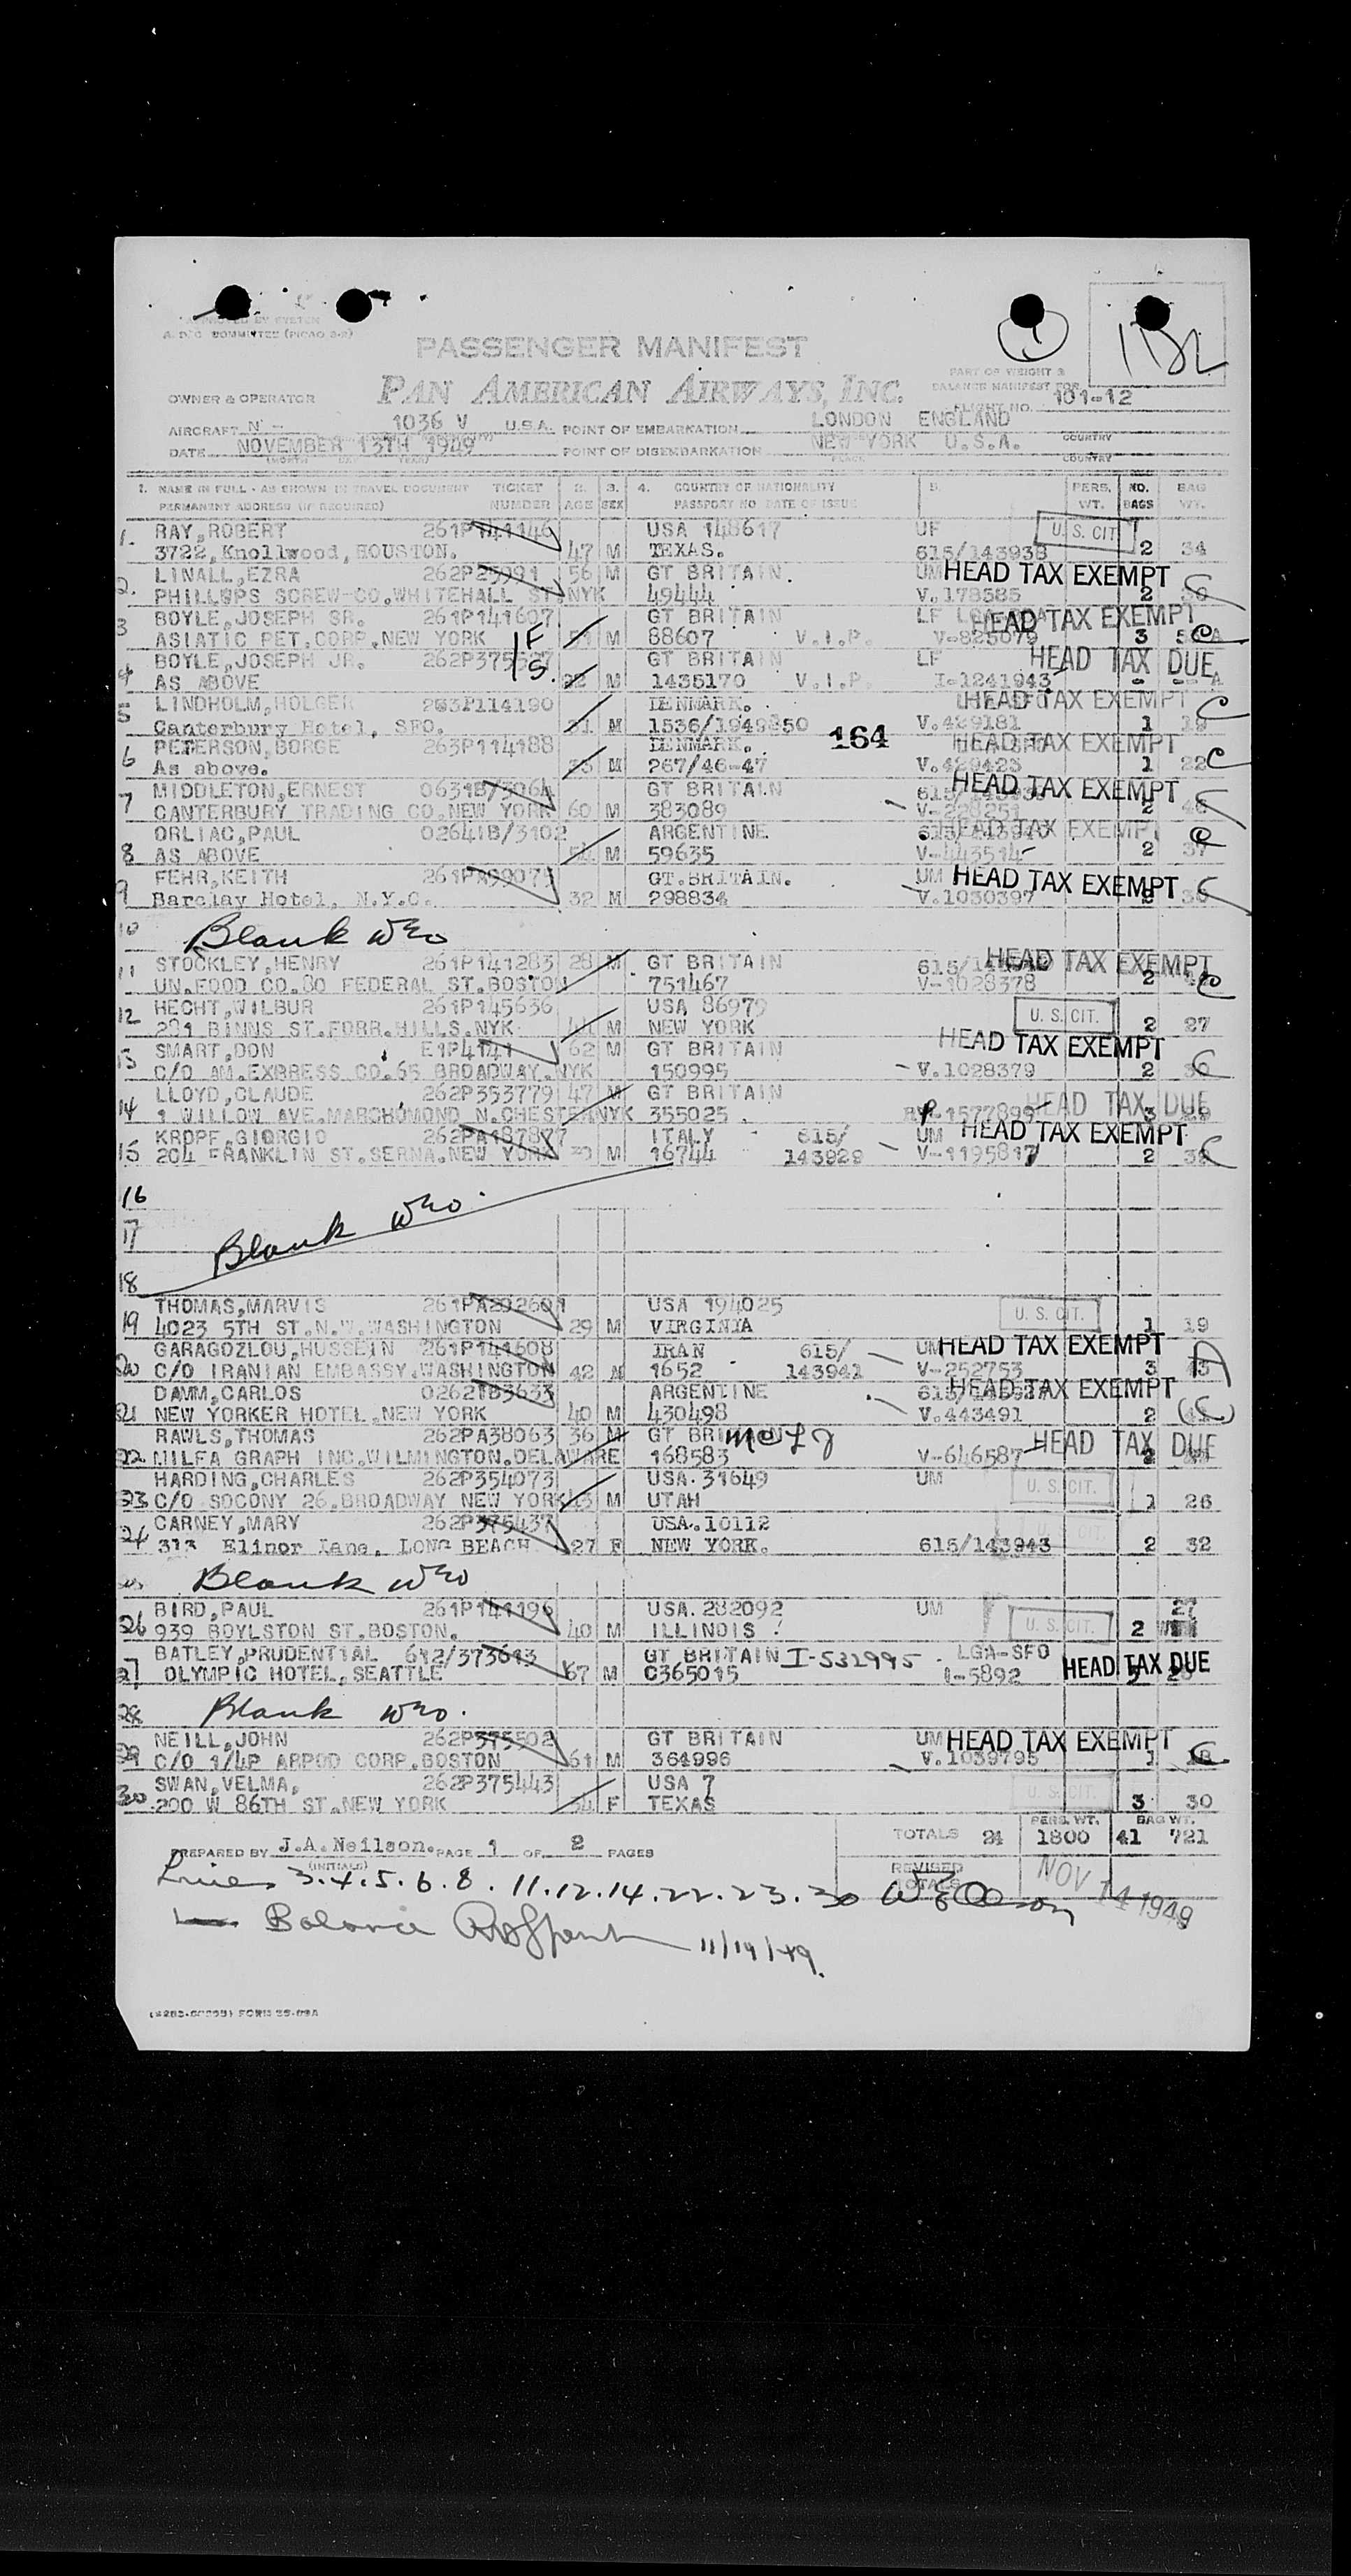 A. D/C COMMITTEE (PICAO 3-2)
PASSENGER MANIFEST
1
PART OF WEIGHT &
BALANCE MANIFEST FOR
PAN AMERICAN AIRWAYS, INC.
FLIGHT NO. 101-12
OWNER & OPERATOR
AIRCRAFT N - 1036 V U.S.A. POINT OF EMBARKATION LONDON ENGLAND
DATE NOVEMBER 13TH 1949 POINT OF DISEMBARKATION NEW YORK U.S.A.
PLACE COUNTRY
1. NAME IN FULL - AS SHOWN IN TRAVEL DOCUMENT TICKET 2. 3. 4. COUNTRY OF NATIONALITY 5. PERS. NO. BAG
PERMANENT ADDRESS (IF REQUIRED) NUMBER AGE SEX PASSPORT NO DATE OF ISSUE WT. BAGS WT.
1. RAY,ROBERT 261P141146 USA 148617 UF U. S. CIT.
3722,Knollwood,HOUSTON. 47 M TEXAS. 615/143938 2 34
2. LINALL,EZRA 262P25991 56 M GT BRITAIN. UM HEAD TAX EXEMPT
PHILLIPS SCREW-CO.WHITEHALL ST.NYK 49444 V.178585 2 C
3 BOYLE,JOSEPH SR. 261P141607 GT BRITAIN LF HEAD TAX EXEMPT
ASIATIC PET.CORP.NEW YORK 1F M 88607 V.I.P. V-825079 3 C
4 BOYLE,JOSEPH JR. 262P375527 GT BRITAIN LF HEAD TAX DUE
AS ABOVE 1S. 22 M 1435170 V.I.P. I-1241943 - - A
5 LINDHOLM,HOLGER 263P114190 DENMARK. HEAD TAX EXEMPT C
Canterbury Hotel, SFO. 31 M 1536/1949850 164 V.429181 1 19
6 PETERSON,BORGE 263P114188 DENMARK. HEAD TAX EXEMPT
As above. M 267/46-47 V.429423 1 22 C
7 MIDDLETON,ERNEST 0631B/3064 GT BRITAIN HEAD TAX EXEMPT
CANTERBURY TRADING CO.NEW YORK 60 M 383089 2 C
8 ORLIAC,PAUL 02641B/3102 ARGENTINE HEAD TAX EXEMPT C
AS ABOVE M 59635 V-443514 2 37
9 FEHR,KEITH 261PA99075 GT.BRITAIN. UM HEAD TAX EXEMPT C
Barclay Hotel, N.Y.C. 32 M 298834 V.1030397 2
10 Blank WEO
11 STOCKLEY,HENRY 261P141283 28 M GT BRITAIN HEAD TAX EXEMPT
UN.FOOD CO.80 FEDERAL ST.BOSTON 751467 V-1028378 2 C
12 HECHT,WILBUR 261P145636 USA 86979 U. S. CIT.
291 BINNS ST.FORR.HILLS.NYK 44 M NEW YORK 2 27
13 SMART,DON E1P4141 62 M GT BRITAIN HEAD TAX EXEMPT
C/O AM.EXPRESS CO.65 BROADWAY.NYK 150995 V.1028379 2 C
14 LLOYD,CLAUDE 262P353779 47 M GT BRITAIN HEAD TAX DUE
1 WILLOW AVE.MARCHOMOND N.CHESTER NYK 355025 1577895 3
15 KROPF,GIORGIO 262PA187877 ITALY 615/ UM HEAD TAX EXEMPT
204 FRANKLIN ST.SERNA.NEW YORK M 16744 143929 V-1195817 2 C
16
17 Blank WEO.
18
19 THOMAS,MARVIS 261PA292601 USA 194025 U. S. CIT.
4023 5TH ST.N.W.WASHINGTON 29 M VIRGINIA 1 19
20 GARAGOZLOU,HUSSEIN 261P141608 IRAN 615/ UM HEAD TAX EXEMPT A
C/O IRANIAN EMBASSY.WASHINGTON 42 M 1652 143941 V-252753 3
21 DAMM,CARLOS 0262TB3633 ARGENTINE HEAD TAX EXEMPT
NEW YORKER HOTEL.NEW YORK 40 M 430498 V.443491 2 C
22 RAWLS,THOMAS 262PA38063 36 M GT BRITAIN HEAD TAX DUE
MILFA GRAPH INC.WILMINGTON.DELAWARE 168583 V-646587
23 HARDING,CHARLES 262P354073 USA.31649 UM U. S. CIT.
C/O SOCONY 26,BROADWAY NEW YORK 43 M UTAH 1 26
24 CARNEY,MARY 262P375437 USA.10112 U. S. CIT.
313 Elinor Lane, LONG BEACH 27 F NEW YORK. 615/143943 2 32
25 Blank WEO
26 BIRD,PAUL 261P141196 USA.282092 UM U. S. CIT. 27
939 BOYLSTON ST.BOSTON. 40 M ILLINOIS 2
27 BATLEY,PRUDENTIAL 612/373613 GT BRITAIN I-532995 LGA-SFO
OLYMPIC HOTEL,SEATTLE 67 M C365015 I-5892 HEAD TAX DUE
28 Blank WEO.
29 NEILL,JOHN 262P375502 GT BRITAIN UM HEAD TAX EXEMPT
C/O 1/4P ARPOD CORP.BOSTON 61 M 364996 V.1039795 1 C
30 SWAN,VELMA, 262P375443 USA 7 U. S. CIT.
200 W 86TH ST.NEW YORK 34 F TEXAS 3 30
PERS. WT. BAG WT.
TOTALS 24 1800 41 721
PREPARED BY J.A.Neilson. PAGE 1 OF 2 PAGES
(INITIALS)
REVISED TOTALS NOV 14 1949
Lines 3.4.5.6.8.11.12.14.22.23.30
Balance 11/14/49.